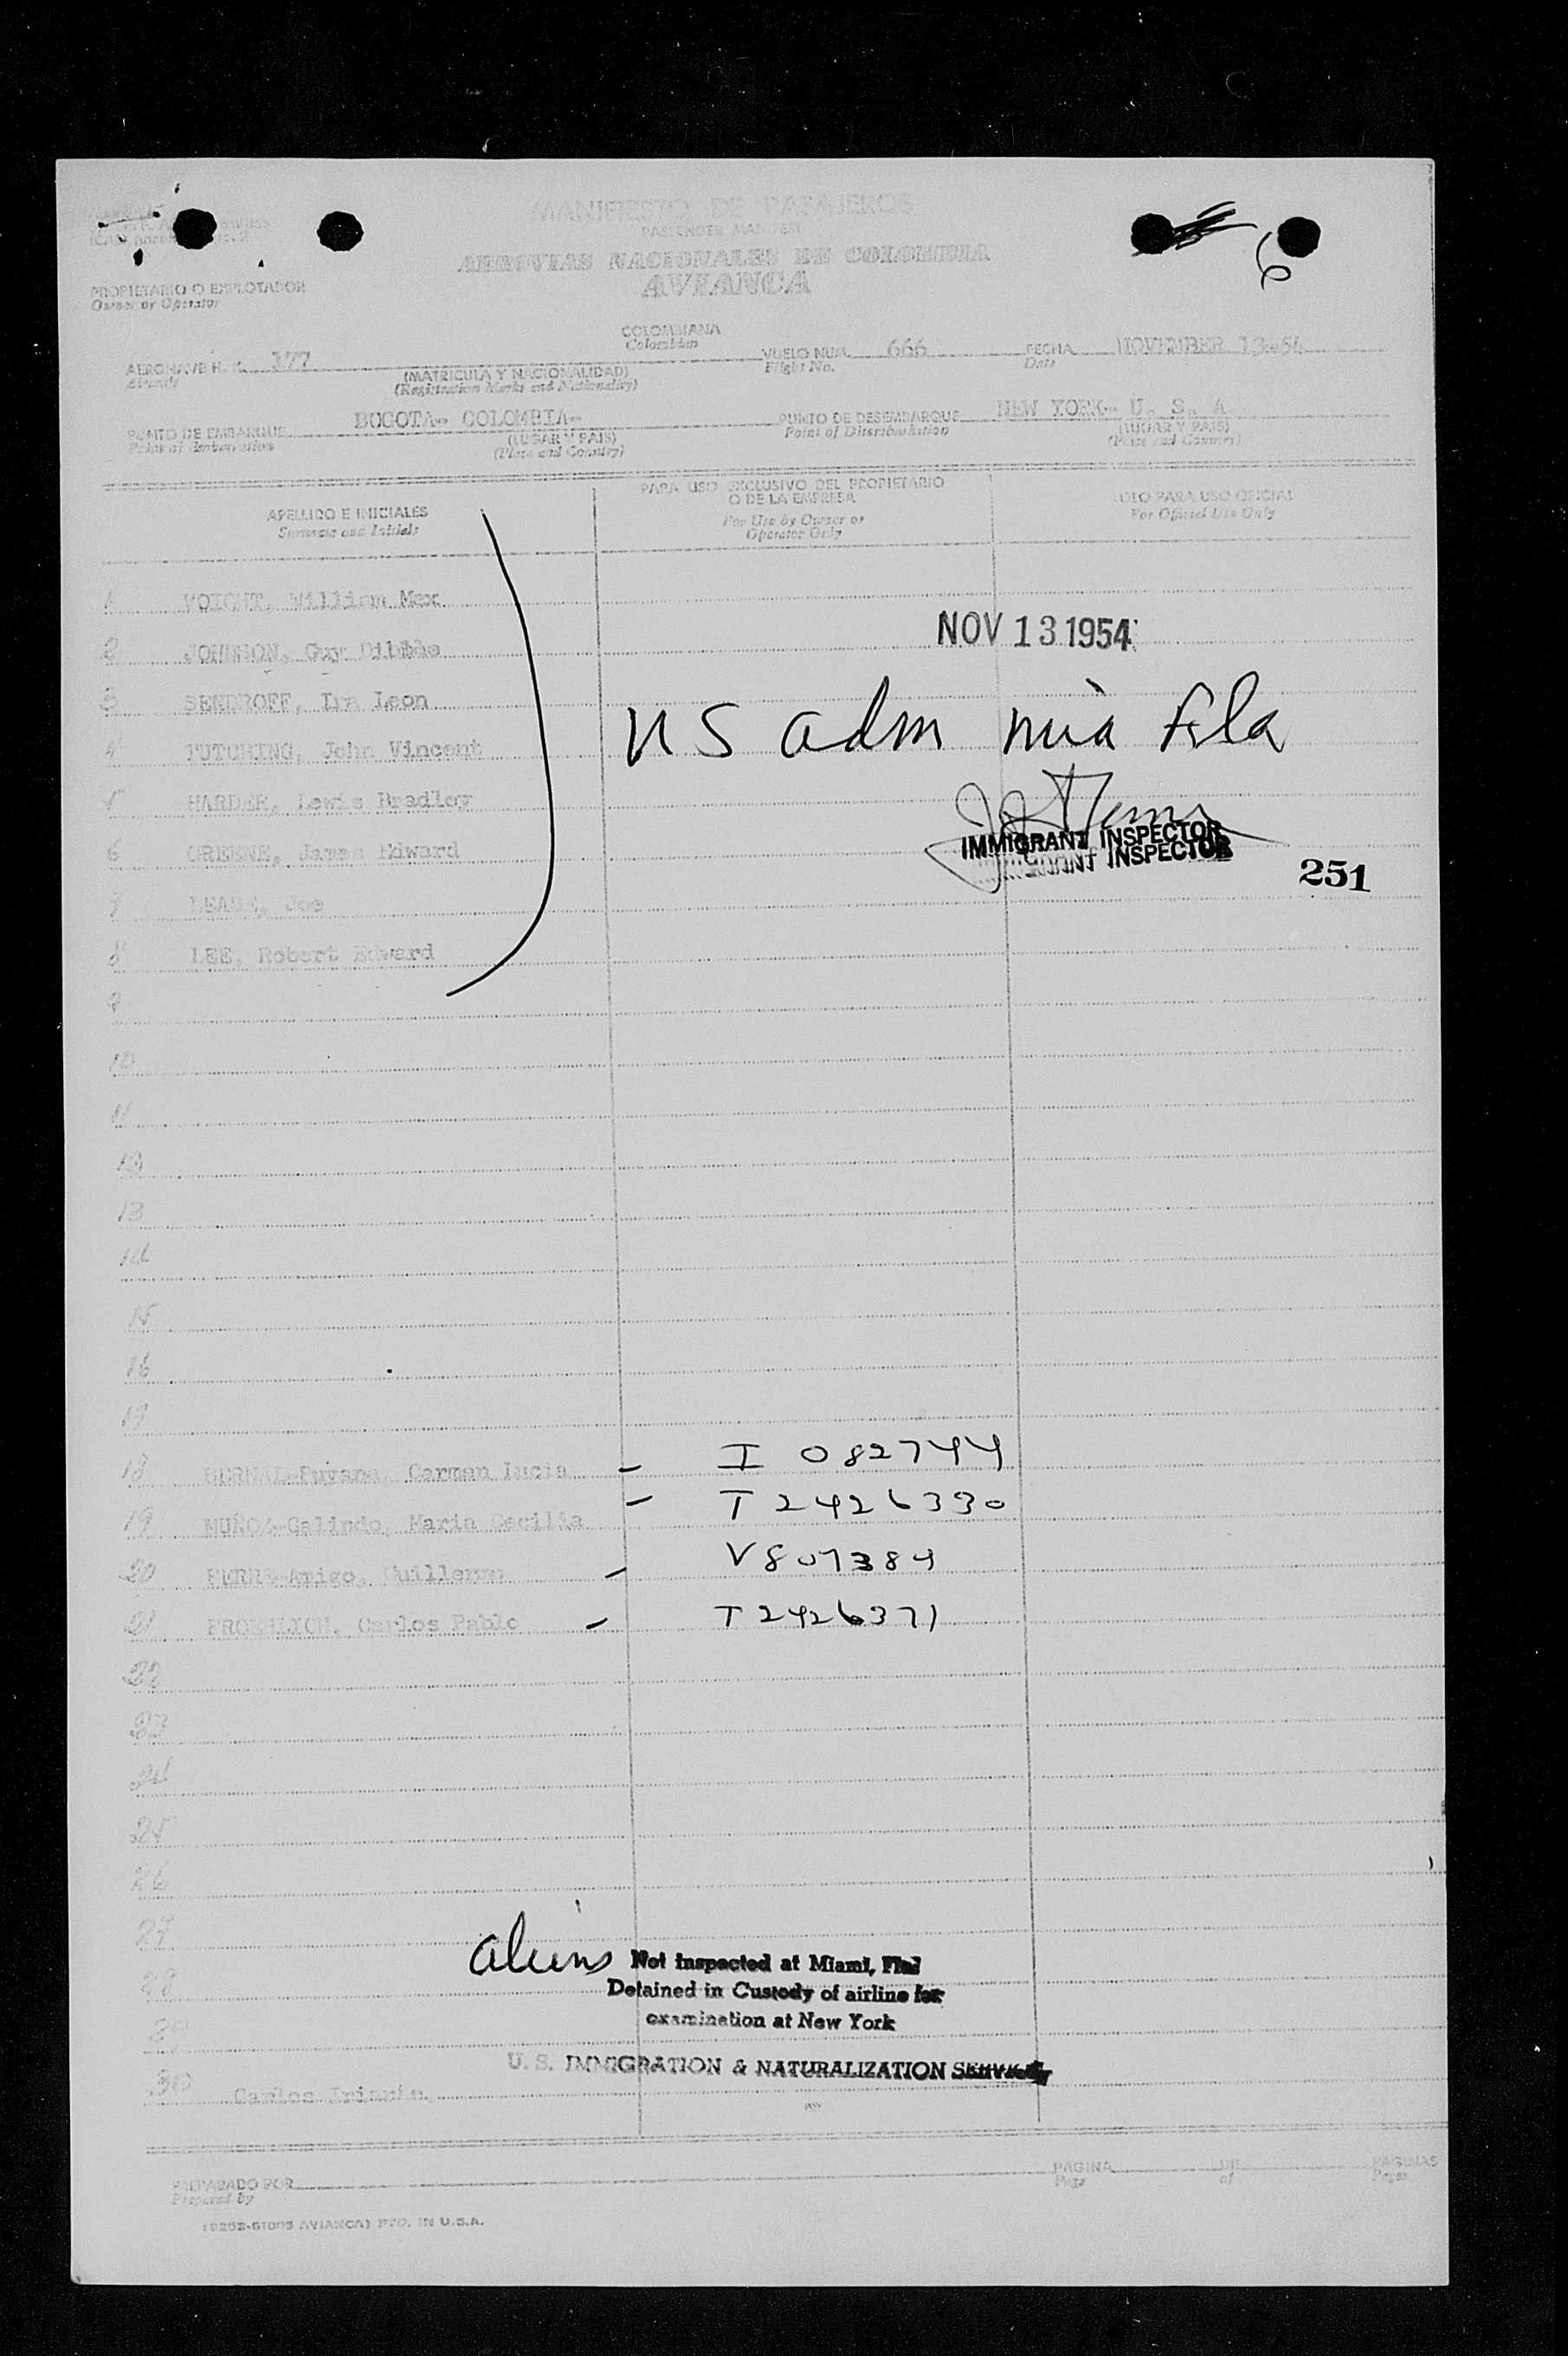 MANIFIESTO DE PASAJEROS
PASSENGER MANIFEST
AEROVIAS NACIONALES DE COLOMBIA
AVIANCA
PROPIETARIO O EXPLOTADOR
Owner or Operator
COLOMBIANA
Colombian
AERONAVE H 177 VUELO NUM. 666 FECHA NOVEMBER 13-54
Aircraft (MATRICULA Y NACIONALIDAD) Flight No. Date
(Registration Marks and Nationality)
PUNTO DE EMBARQUE BOGOTA-- COLOMBIA- PUNTO DE DESEMBARQUE NEW YORK-- U. S. A
Point of Embarkation (LUGAR Y PAIS) Point of Disembarkation (LUGAR Y PAIS)
(Place and Country) (Place and Country)
APELLIDO E INICIALES PARA USO EXCLUSIVO DEL PROPIETARIO O DE LA EMPRESA SOLO PARA USO OFICIAL
Surname and Initials For Use by Owner or Operator Only For Official Use Only
1 VOIGHT, William Max
2 JOHNSON, Guy Dibble
NOV 13 1954
3 SENDROFF, Ira Leon
4 TUTCHING, John Vincent
US adm mia fla
5 HARDER, Lewis Bradley
6 GREENE, James Edward
IMMIGRANT INSPECTOR
IMMIGRANT INSPECTOR
251
7 LEASE, Joe
8 LEE, Robert Edward
9
10
11
12
13
14
15
16
17
18 BERNAL-Puyana, Carmen Lucia - I 082744
19 MUÑOZ-Galindo, Maria Cecilia - T 2426330
20 FERRE-Amigo, Guillermo - V807384
21 FROEHLICH, Carlos Pablo - T 2426371
22
23
24
25
26
27
aliens Not Inspected at Miami, Fla
28 Detained in Custody of airline for
examination at New York
29
U. S. IMMIGRATION & NATURALIZATION SERVICE
30 Carlos Iriarte
PREPARADO POR PAGINA DE PAGINAS
Prepared by Page of Pages
AVIANCA) PTD. IN U.S.A.